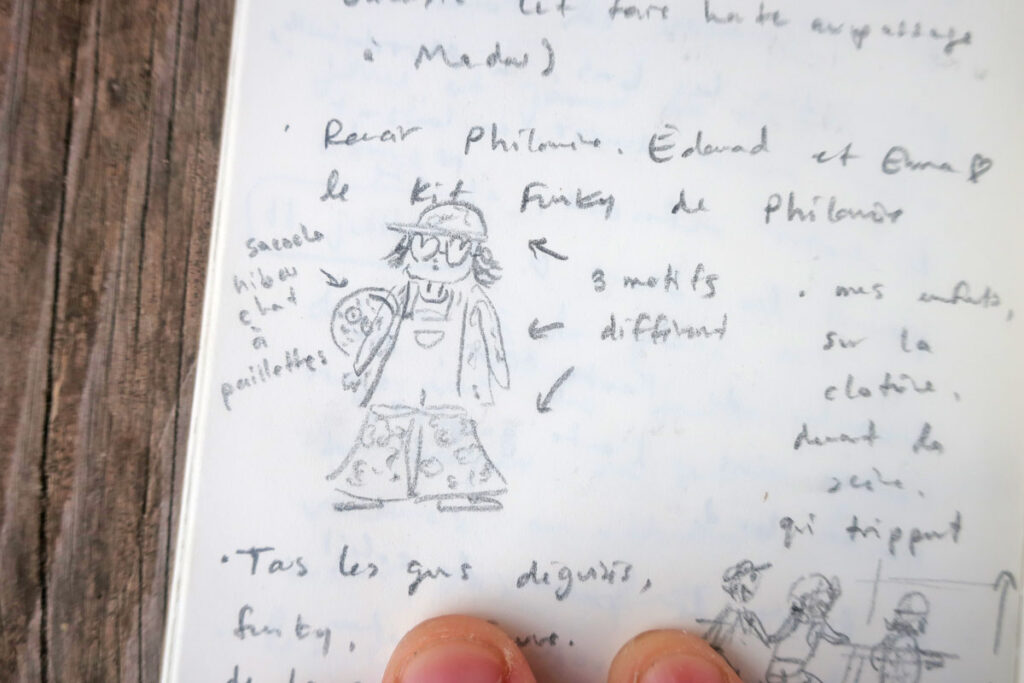 let faire halte au passage
à Madar)
· Revoir Philomène, Édouard et Emma
le Kit Funky de Philomène
sacoche
hibou
chat
à
paillettes
3 motifs
différent
· mes enfants,
sur la
clotûre,
devant la
scène,
qui trippent
· Tous les gens déguisés,
funky,